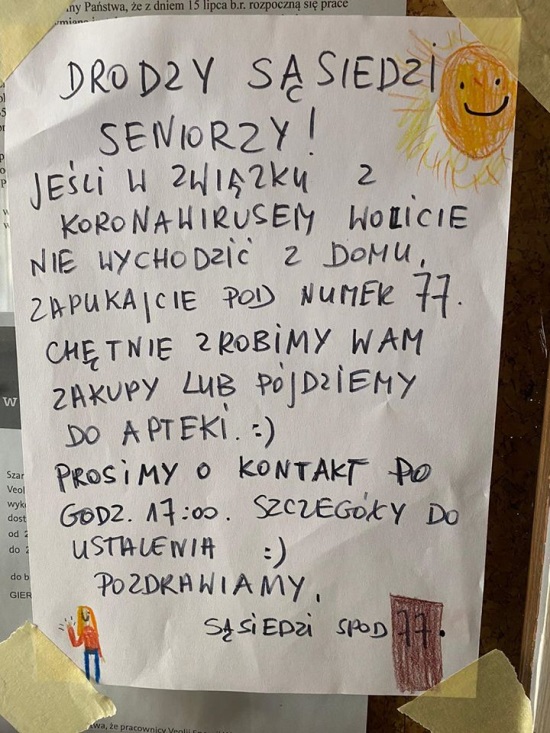 ny Państwa, że z dniem 15 lipca b.r. rozpoczną się prace
DRODZY SĄSIEDZI
SENIORZY!
JEŚLI W ZWIĄZKU Z
KORONAWIRUSEM WOLICIE
NIE WYCHODZIĆ Z DOMU,
ZAPUKAJCIE POD NUMER 77.
CHĘTNIE ZROBIMY WAM
ZAKUPY LUB PÓJDZIEMY
DO APTEKI. :)
PROSIMY O KONTAKT PO
GODZ. 17:00. SZCZEGÓŁY DO
USTALENIA :)
POZDRAWIAMY,
SĄSIEDZI SPOD 77.
W
Szar
Veol
wyko
dost
od 2
do 2
do b
GIER
twa, że pracownicy Veolii